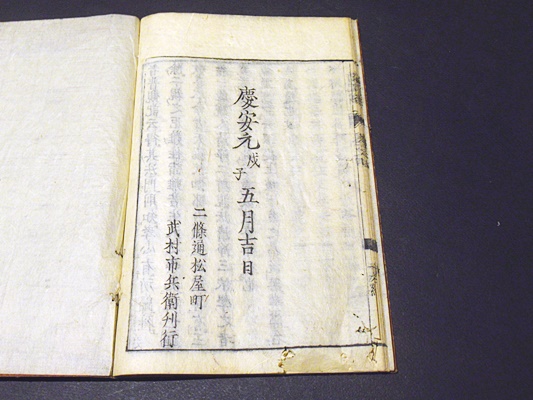 慶安元戊子五月吉日
二條通松屋町
武村市兵衛刊行